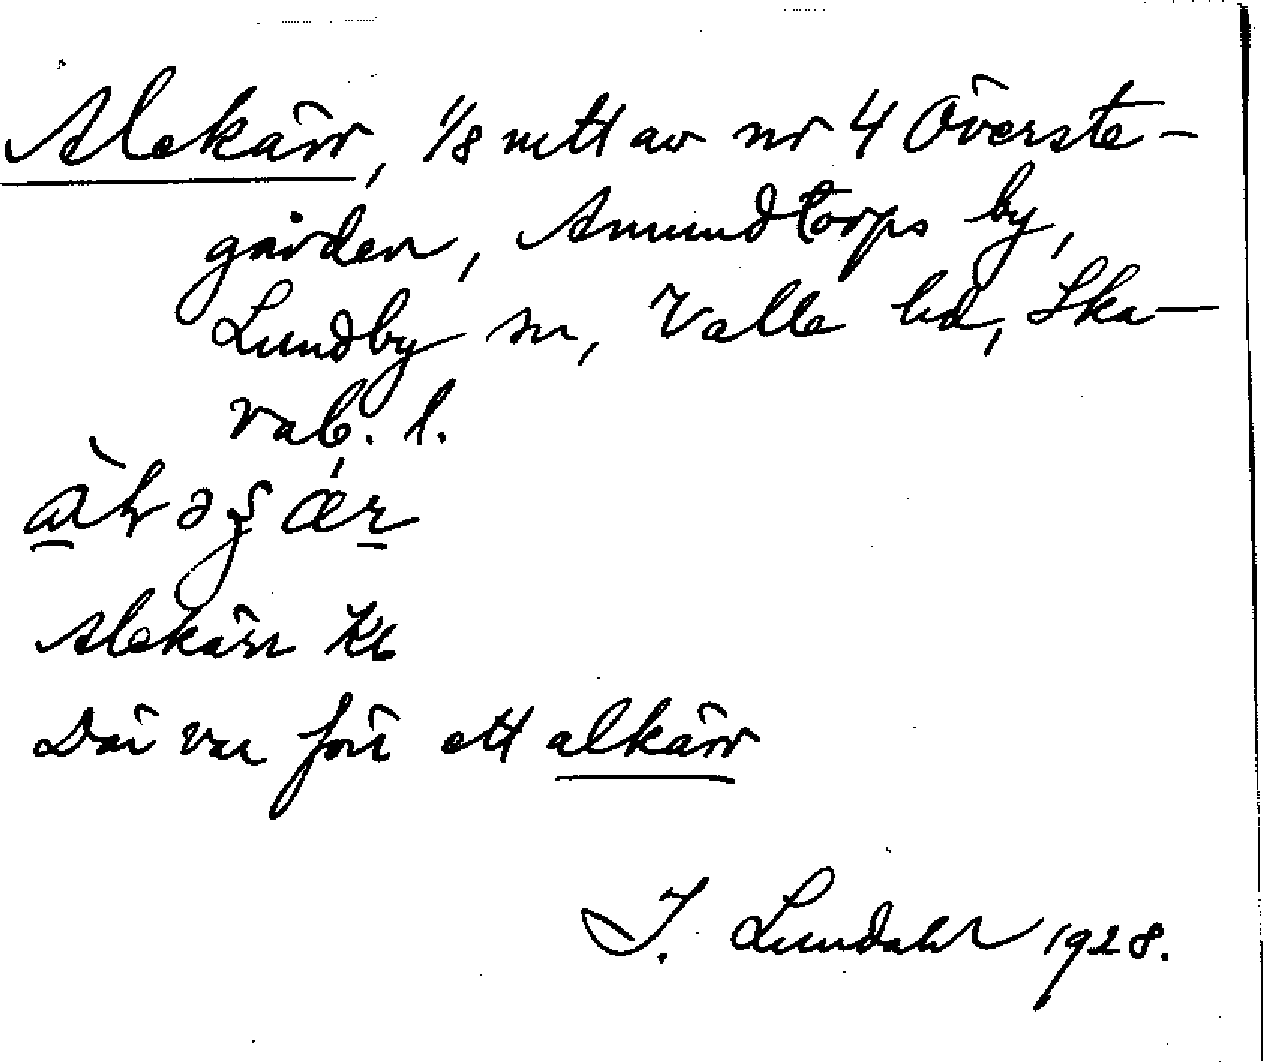 Alekärr, 1/8 mtl av nr 4 Överste-
gården, Amundtorps by,
Lundby sn, Valle hd, Ska-
rab. l.
Alekärr Kb
Där var förr ett alkärr
I. Lundahl 1928.